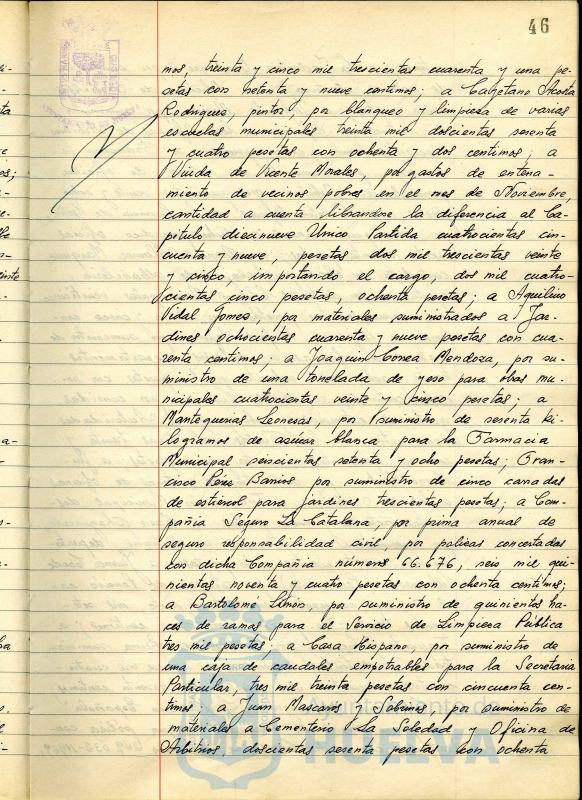 46
mos, treinta y cinco mil trescientas cuarenta y una pe-
setas con setenta y nueve centimos; a Cayetano Acosta
Rodriguez, pintor, por blanqueo y limpieza de varias
escuelas municipales treinta mil doscientas sesenta
y cuatro pesetas con ochenta y dos centimos; a
Viuda de Vicente Morales, por gastos de enterra-
miento de vecinos pobres en el mes de Noviembre,
cantidad a cuenta librandose la diferencia al Ca-
pitulo diecinueve Unico Partida cuatrocientas cin-
cuenta y nueve, pesetas dos mil trescientas veinte
y cinco, importando el cargo, dos mil cuatro-
cientas cinco pesetas, ochenta pesetas; a Aquilino
Vidal Gomes, por materiales suministrados a Jar-
dines ochocientas cuarenta y nueve pesetas con cua-
renta centimos; a Joaquin Correa Mendoza, por su-
ministro de una tonelada de yeso para obras mu-
nicipales cuatrocientas veinte y cinco pesetas; a
Mantequerias Leonesas, por suministro de sesenta ki-
logramos de azúcar blanca para la Farmacia
Municipal seiscientas setenta y ocho pesetas; Fran-
cisco Peres Barrios por suministro de cinco carradas
de estiercol para jardines trescientas pesetas; a Com-
pañia Seguro La Catalana, por prima anual de
seguro responsabilidad civil, por polizas concertadas
con dicha Compañia números 66.676, seis mil qui-
nientas noventa y cuatro pesetas con ochenta centimos;
a Bartolomé Limón, por suministro de quinientos ha-
ces de ramas para el Servicio de Limpieza Pública
tres mil pesetas; a Casa Hispano, por suministro de
una caja de caudales empotrables para la Secretaria
Particular, tres mil treinta pesetas con cincuenta cen-
timos; a Juan Mascarós y Sobrinos, por suministro de
materiales a Cementerio La Soledad y Oficina de
Arbitrios doscientas sesenta pesetas con ochenta
HUELVA